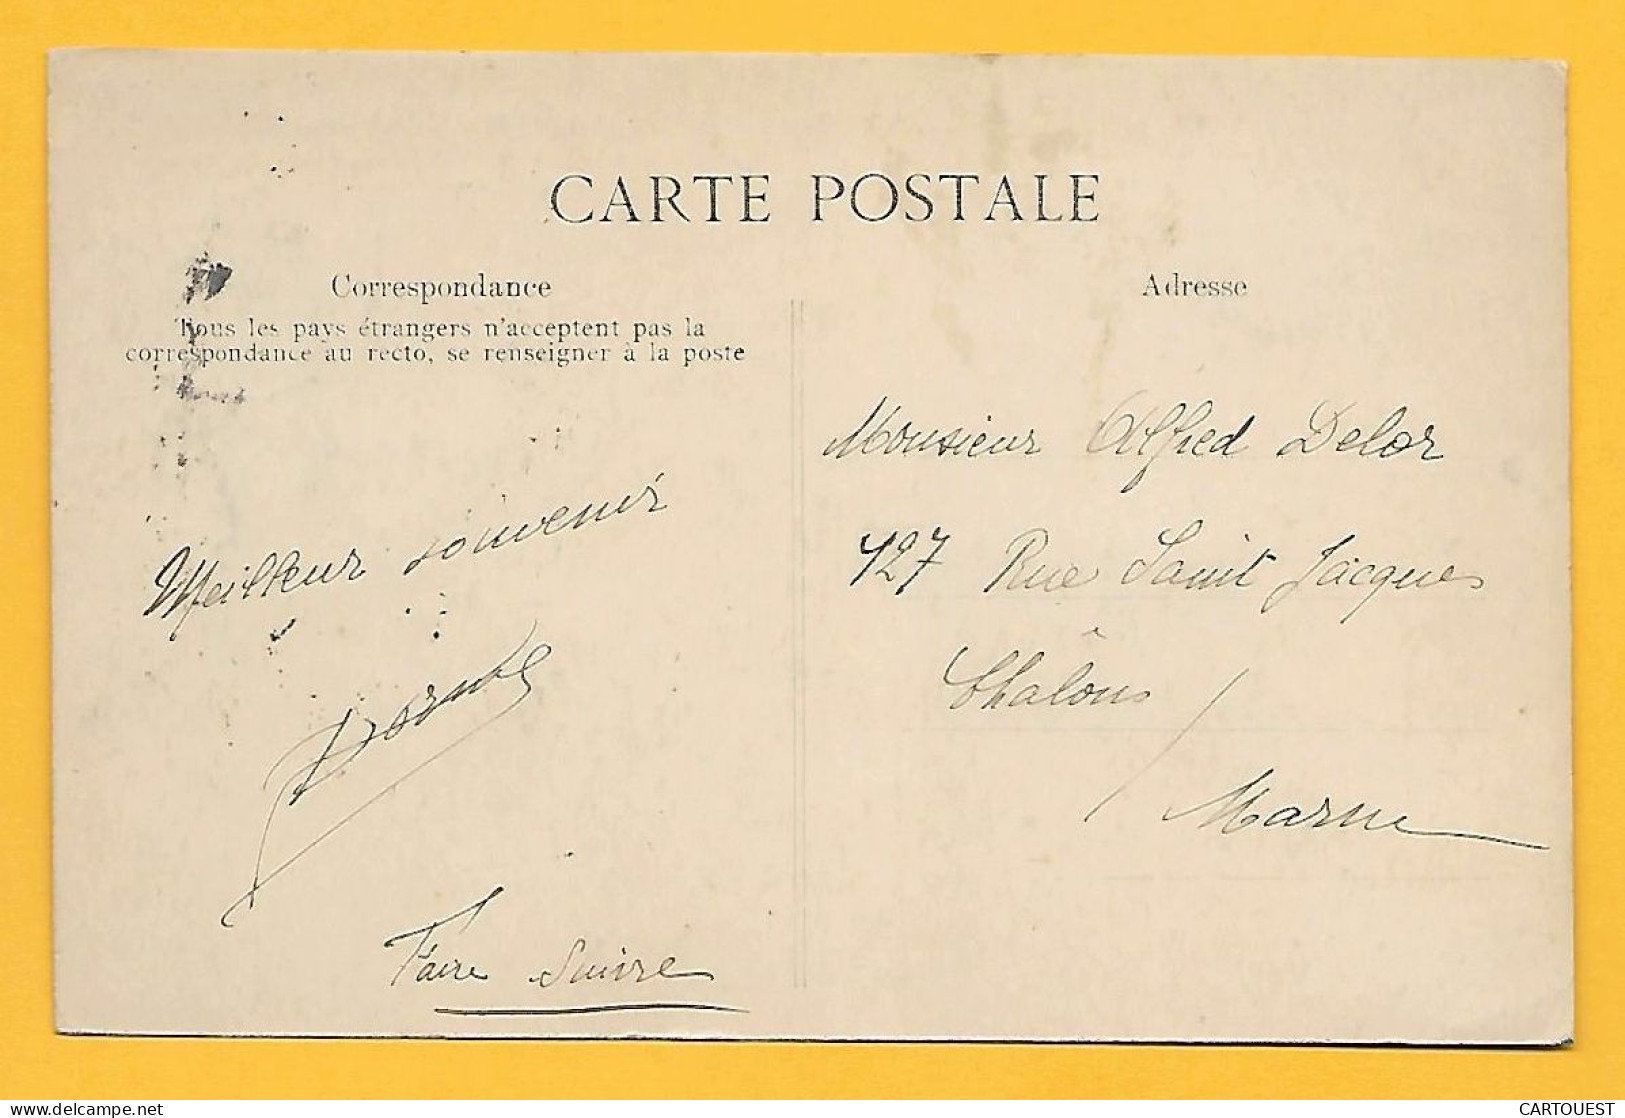 CARTE POSTALE
Correspondance
Tous les pays étrangers n'acceptent pas la
correspondance au recto, se renseigner à la poste
Meilleur souvenir
Faire suivre
Adresse
Monsieur Alfred Delor
127 Rue Saint Jacques
Châlons /
Marne
delcampe.net
CARTOUEST